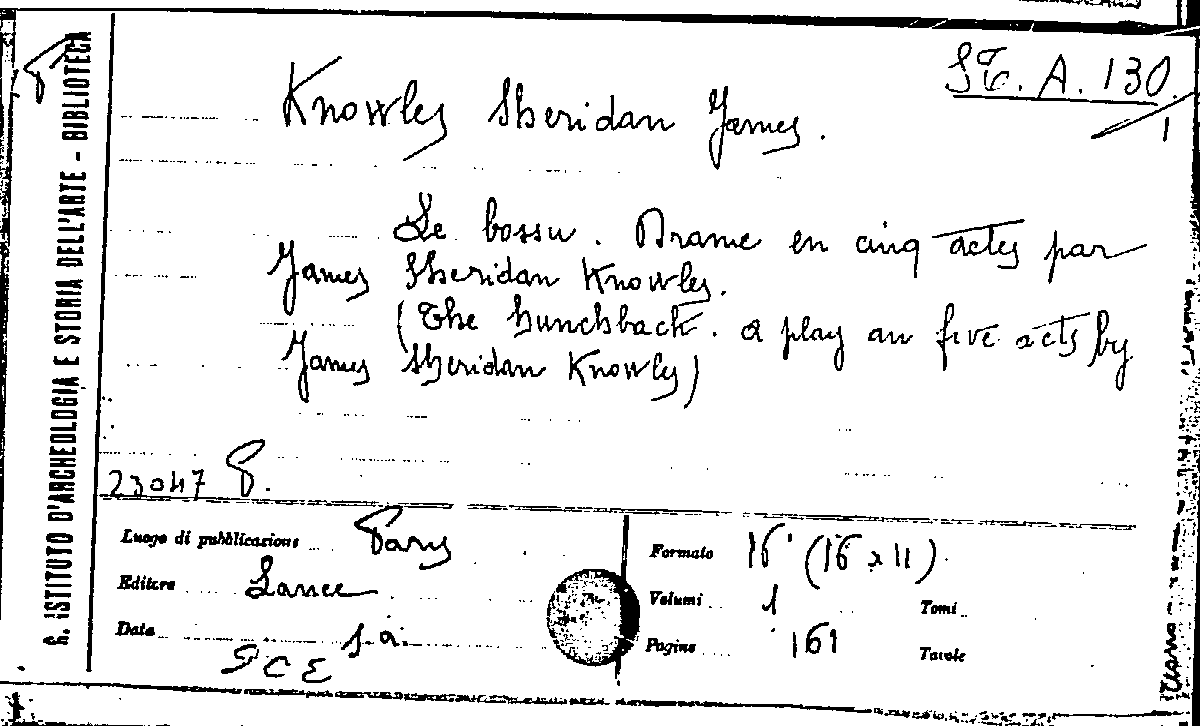 R. ISTITUTO D'ARCHEOLOGIA E STORIA DELL'ARTE - BIBLIOTECA
St. A. 130.
1
Knowles Sheridan James.
Le bossu. Drame en cinq actes par
James Sheridan Knowles.
(The hunchback. a play an five acts by
James Sheridan Knowles)
23047 P.
Luogo di pubblicazione Paris
Editore Lance
Data s.a.
Formato 16° (16 x 11)
Volumi 1 Tomi
Pagine 161 Tavole